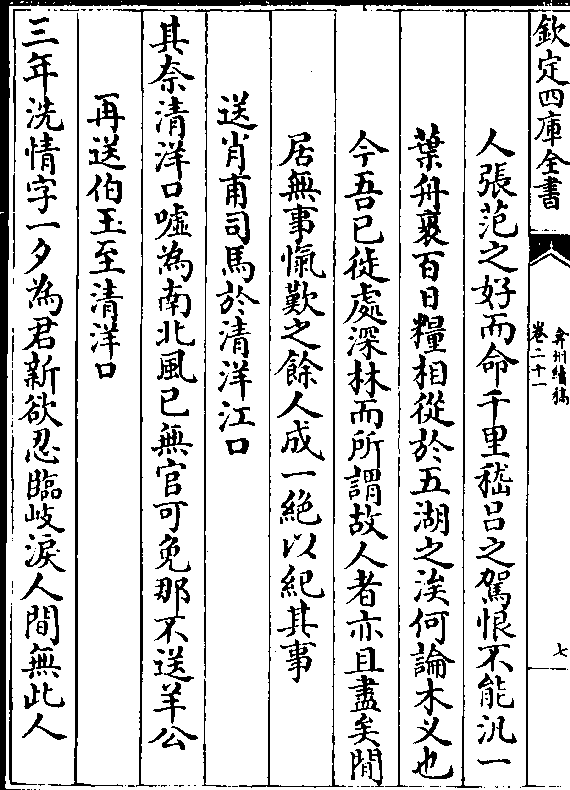 欽定四庫全書
弇州續稿
卷二十一
七
人張范之好而命千里嵇吕之駕恨不能汎一
葉舟裹百日糧相從於五湖之涘何論木义也
今吾已徙處深林而所謂故人者亦且盡矣閒
居無事愾歎之餘人成一絶以紀其事
送肖甫司馬於清洋江口
其奈清洋口噓為南北風已無官可免那不送羊公
再送伯玉至清洋口
三年洗情字一夕為君新欲忍臨岐淚人間無此人